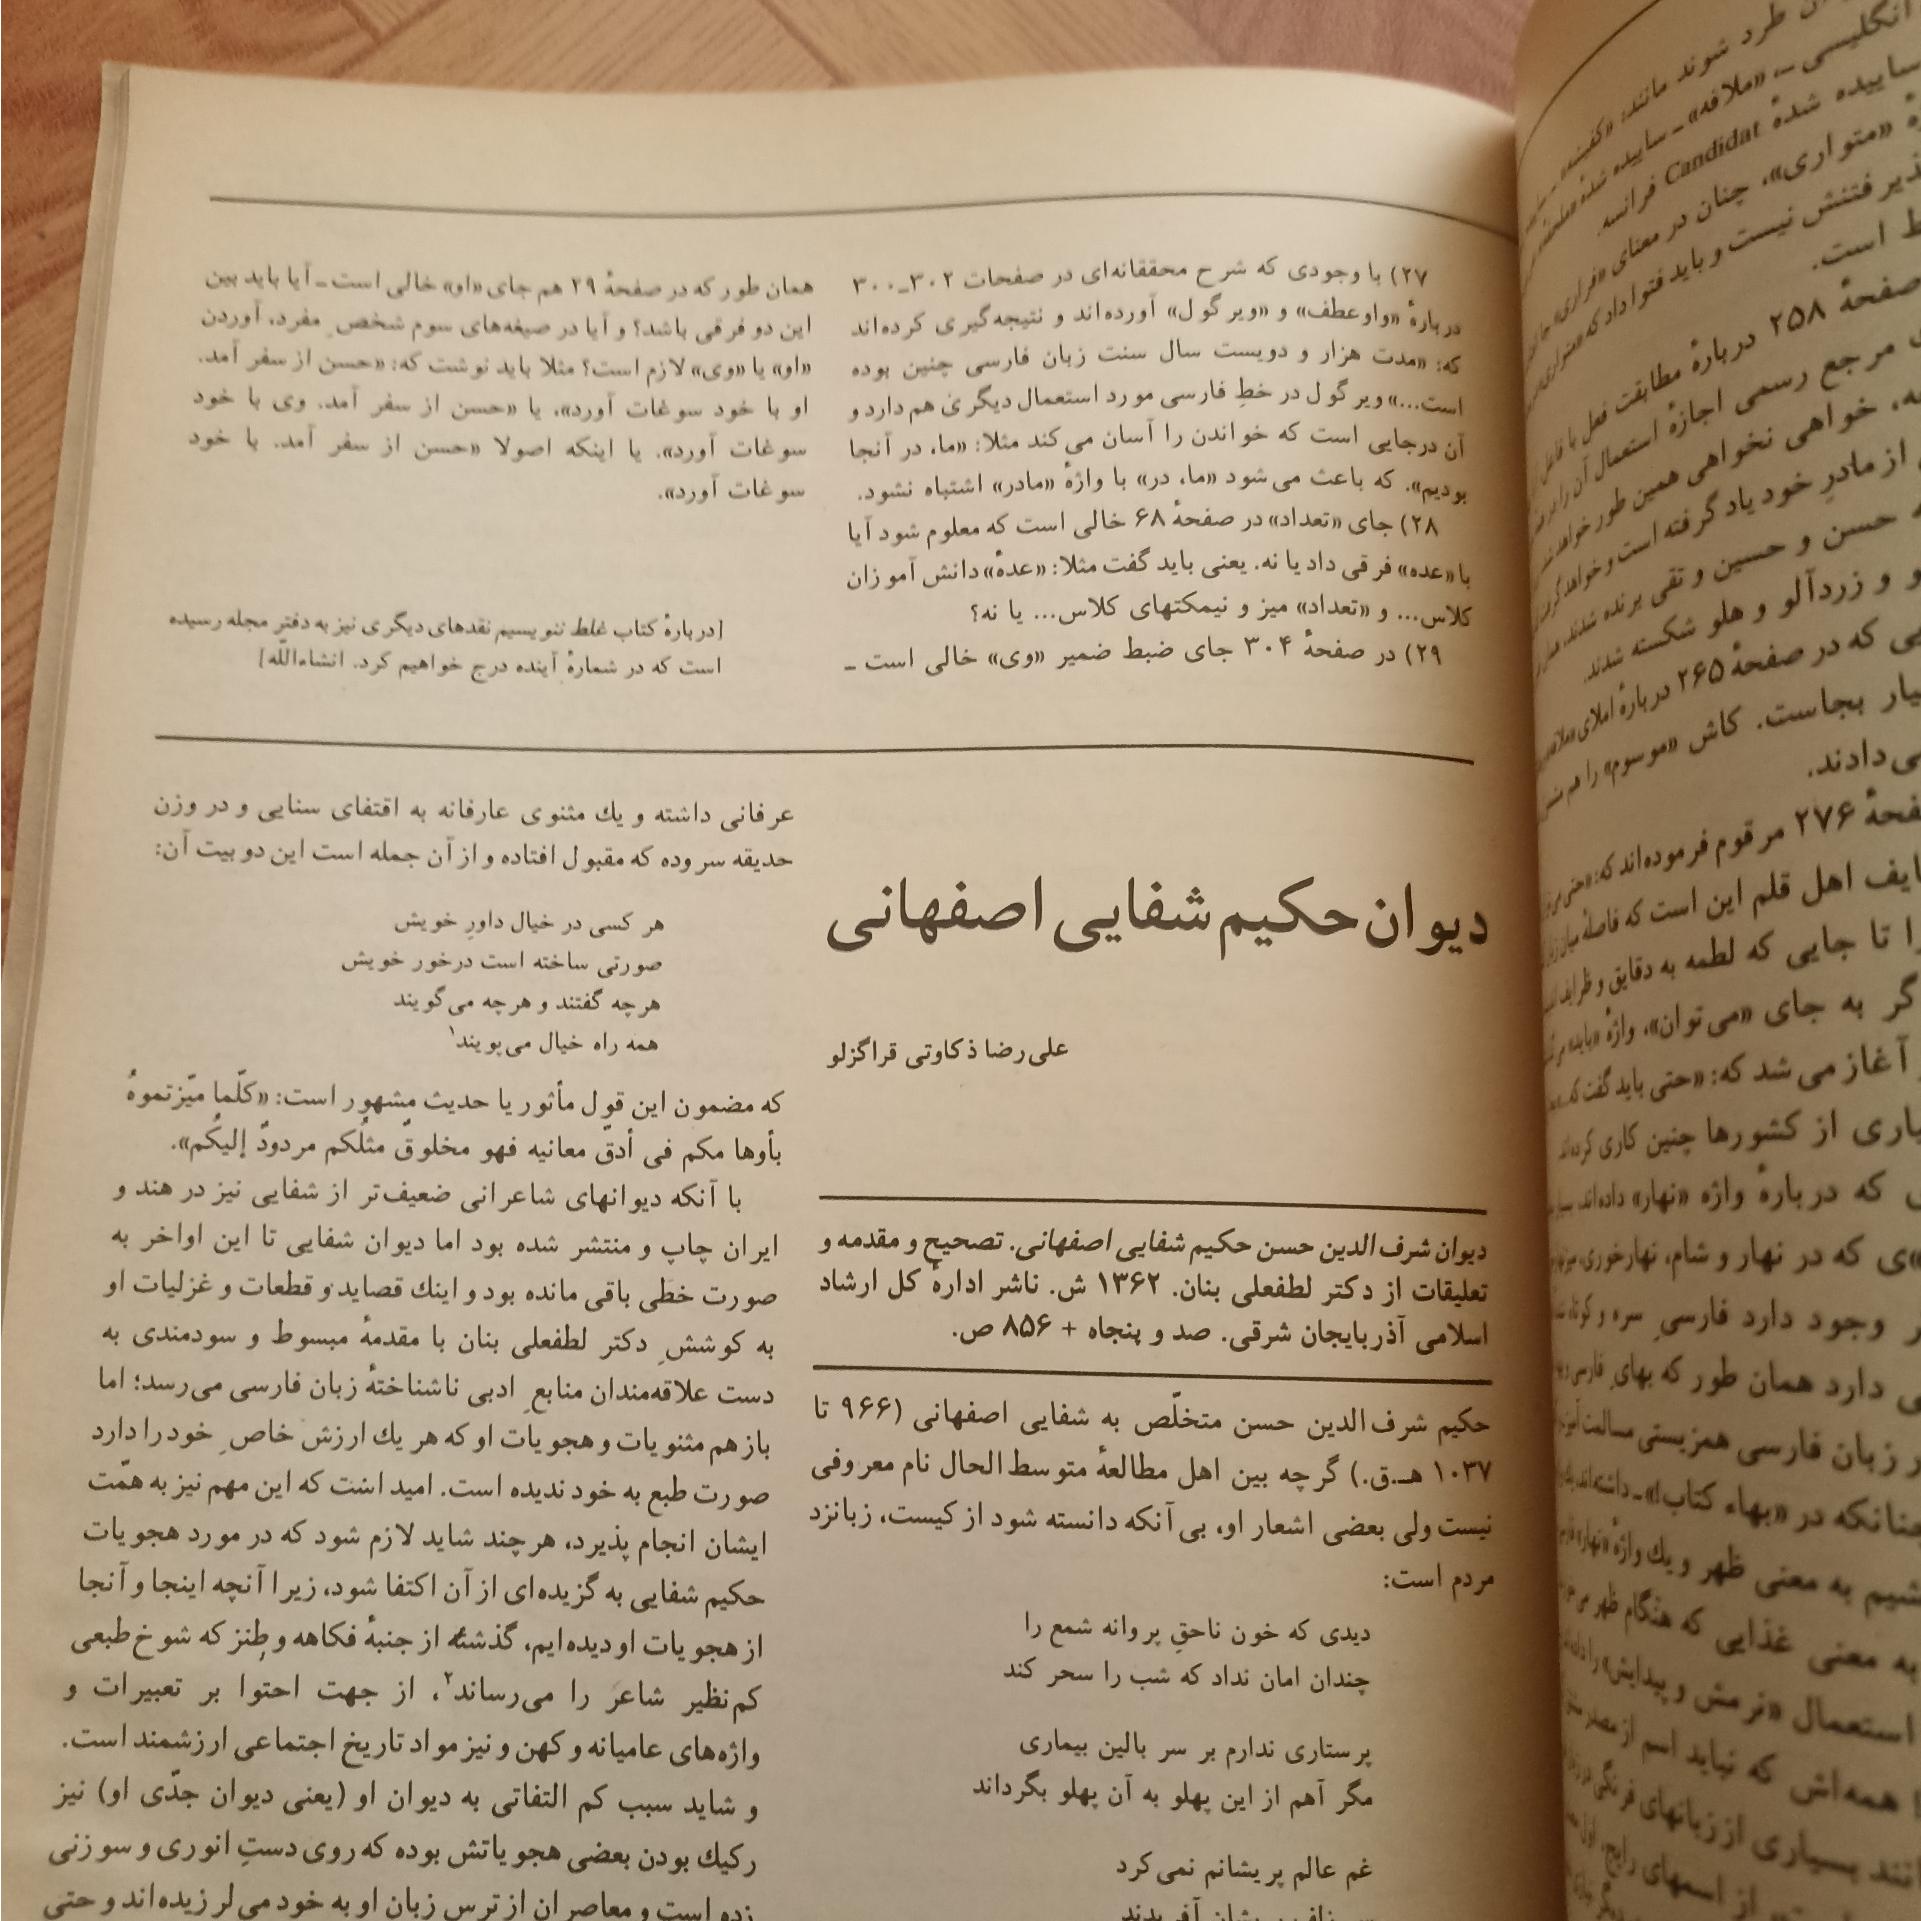 ۲۷) با وجودی که شرح محققانه‌ای در صفحات ۳۰۲ـ۳۰۰
دربارهٔ «واو عطف» و «ویرگول» آورده‌اند و نتیجه‌گیری کرده‌اند
که: «مدت هزار و دویست سال سنت زبان فارسی چنین بوده
است...» ویرگول در خطِ فارسی مورد استعمال دیگری هم دارد و
آن درجایی است که خواندن را آسان می‌کند مثلا: «ما، در آنجا
بودیم». که باعث می‌شود «ما، در» با واژهٔ «مادر» اشتباه نشود.
۲۸) جای «تعداد» در صفحهٔ ۶۸ خالی است که معلوم شود آیا
با «عده» فرقی داد یا نه. یعنی باید گفت مثلا: «عدهٔ» دانش آموزان
کلاس... و «تعداد» میز و نیمکتهای کلاس... یا نه؟
۲۹) در صفحهٔ ۳۰۴ جای ضبط ضمیر «وی» خالی است ـ
همان طور که در صفحهٔ ۲۹ هم جای «او» خالی است ـ آیا باید بین
این دو فرقی باشد؟ و آیا در صیغه‌های سوم شخصِ مفرد، آوردن
«او» یا «وی» لازم است؟ مثلا باید نوشت که: «حسن از سفر آمد.
او با خود سوغات آورد»، یا «حسن از سفر آمد. وی با خود
سوغات آورد». یا اینکه اصولا «حسن از سفر آمد. با خود
سوغات آورد».
[دربارهٔ کتاب غلط ننویسیم نقدهای دیگری نیز به دفتر مجله رسیده
است که در شمارهٔ آینده درج خواهیم کرد. انشاءاللّه]
دیوان حکیم شفایی اصفهانی
علی‌رضا ذکاوتی قراگزلو
دیوان شرف‌الدین حسن حکیم شفایی اصفهانی. تصحیح و مقدمه و
تعلیقات از دکتر لطفعلی بنان. ۱۳۶۲ ش. ناشر ادارهٔ کل ارشاد
اسلامی آذربایجان شرقی. صد و پنجاه + ۸۵۶ ص.
حکیم شرف‌الدین حسن متخلّص به شفایی اصفهانی (۹۶۶ تا
۱۰۳۷ هـ.ق.) گرچه بین اهل مطالعهٔ متوسط‌الحال نام معروفی
نیست ولی بعضی اشعار او، بی‌آنکه دانسته شود از کیست، زبانزد
مردم است:
دیدی که خون ناحقِ پروانه شمع را
چندان امان نداد که شب را سحر کند
پرستاری ندارم بر سر بالین بیماری
مگر آهم از این پهلو به آن پهلو بگرداند
غم عالم پریشانم نمی‌کرد
عرفانی داشته و یك مثنوی عارفانه به اقتفای سنایی و در وزن
حدیقه سروده که مقبول افتاده و از آن جمله است این دو بیت آن:
هر کسی در خیال داورِ خویش
صورتی ساخته است درخور خویش
هرچه گفتند و هرچه می‌گویند
همه راه خیال می‌پویند۱
که مضمون این قول مأثور یا حدیث مشهور است: «کلّما میّزتموهُ
بأوها مکم فی أدقّ معانیه فهو مخلوقٌ مثلُکم مردودٌ إلیکُم».
با آنکه دیوانهای شاعرانی ضعیف‌تر از شفایی نیز در هند و
ایران چاپ و منتشر شده بود اما دیوان شفایی تا این اواخر به
صورت خطی باقی مانده بود و اینك قصاید و قطعات و غزلیات او
به کوششِ دکتر لطفعلی بنان با مقدمهٔ مبسوط و سودمندی به
دست علاقه‌مندان منابعِ ادبی ناشناختهٔ زبان فارسی می‌رسد؛ اما
بازهم مثنویات و هجویات او که هر یك ارزش خاصِ خود را دارد
صورت طبع به خود ندیده است. امید است که این مهم نیز به همّت
ایشان انجام پذیرد، هرچند شاید لازم شود که در مورد هجویات
حکیم شفایی به گزیده‌ای از آن اکتفا شود، زیرا آنچه اینجا و آنجا
از هجویات او دیده‌ایم، گذشته از جنبهٔ فکاهه و طنز که شوخ طبعی
کم‌نظیر شاعر را می‌رساند۲، از جهت احتوا بر تعبیرات و
واژه‌های عامیانه و کهن و نیز مواد تاریخ اجتماعی ارزشمند است.
و شاید سبب کم التفاتی به دیوان او (یعنی دیوان جدّی او) نیز
رکیك بودن بعضی هجویاتش بوده که روی دستِ انوری و سوزنی
زده است و معاصران از ترس زبان او به خود می‌لرزیده‌اند و حتی
طرد شوند مانند:
ساییده شدهٔ Candidat فرانسه.
«متواری»، چنان در معنای «فراری»
نیست و باید فتوا داد که
است.
صفحهٔ ۲۵۸ دربارهٔ مطابقت فعل با فاعل
مرجع رسمی اجازهٔ استعمال آن را
خواهی نخواهی همین طور خواهد شد
از مادرِ خود یاد گرفته است و خواهد گرفت
حسن و حسین و تقی برنده شدند،
و زردآلو و هلو شکسته شدند.
که در صفحهٔ ۲۶۵ دربارهٔ املای
بجاست. کاش «موسوم» را هم
۲۷۶ مرقوم فرموده‌اند که:
اهل قلم این است که فاصلهٔ میان
تا جایی که لطمه به دقایق و ظرایف
به جای «می‌توان»، واژهٔ «باید»
آغاز می‌شد که: «حتی باید گفت که
از کشورها چنین کاری کرده‌اند
که دربارهٔ واژه «نهار» داده‌اند،
که در نهار و شام، نهارخوری،
وجود دارد فارسیِ سره و کوتاه
دارد همان طور که بهایِ فارسی
زبان فارسی همزیستی مسالمت
در «بهاء کتاب» ـ داشته‌اند،
به معنی ظهر و یك واژهٔ «نهار»
به معنی غذایی که هنگام ظهر
استعمال «نرمش و پیدایش» را
همه‌اش که نباید اسم از مصدر
بسیاری از زبانهای فرنگی
از اسمهای رایج،